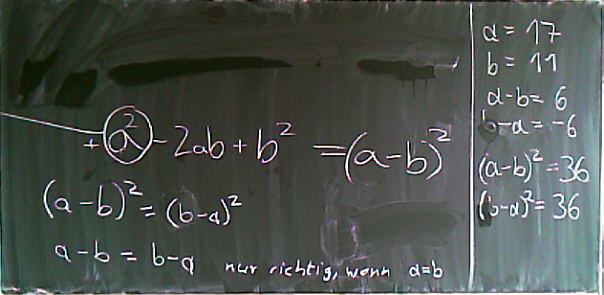 +a² - 2ab + b² = (a-b)²
(a-b)² = (b-a)²
a-b = b-a nur richtig, wann a=b
a = 17
b = 11
a-b = 6
b-a = -6
(a-b)² = 36
(b-a)² = 36